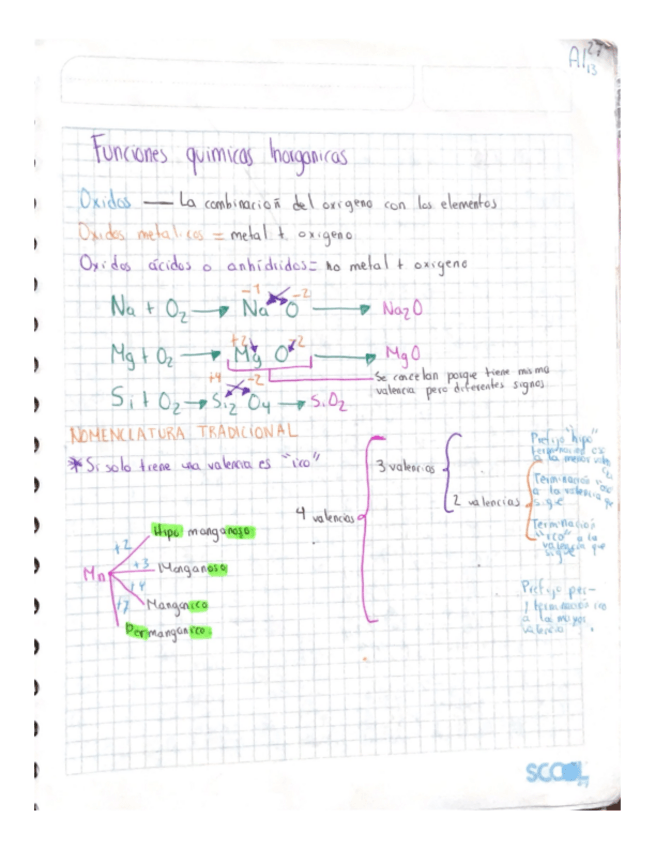 Al 27 13
Funciones quimicas Inorganicas
Oxidos — La combinación del oxigeno con los elementos
Oxidos metalicos = metal + oxigeno
Oxidos ácidos o anhídridos = no metal + oxigeno
-1 -2
Na + O2 → Na O → Na2O
+2 -2
Mg + O2 → Mg O → MgO
Se cancelan porque tiene misma
valencia pero diferentes signos
+4 -2
Si + O2 → Si2 O4 → SiO2
NOMENCLATURA TRADICIONAL
* Si solo tiene una valencia es "ico"
4 valencias
3 valencias
2 valencias
Prefijo "hipo"
a la menor
Terminación
a la valencia que
sigue
Terminación
"ico" a la
valencia que
sigue
Prefijo per-
y terminación ico
a la mayor
valencia.
Mn
+2 Hipo manganoso
+3 Manganoso
+4 Manganico
+7 Permanganico.
SCOOL